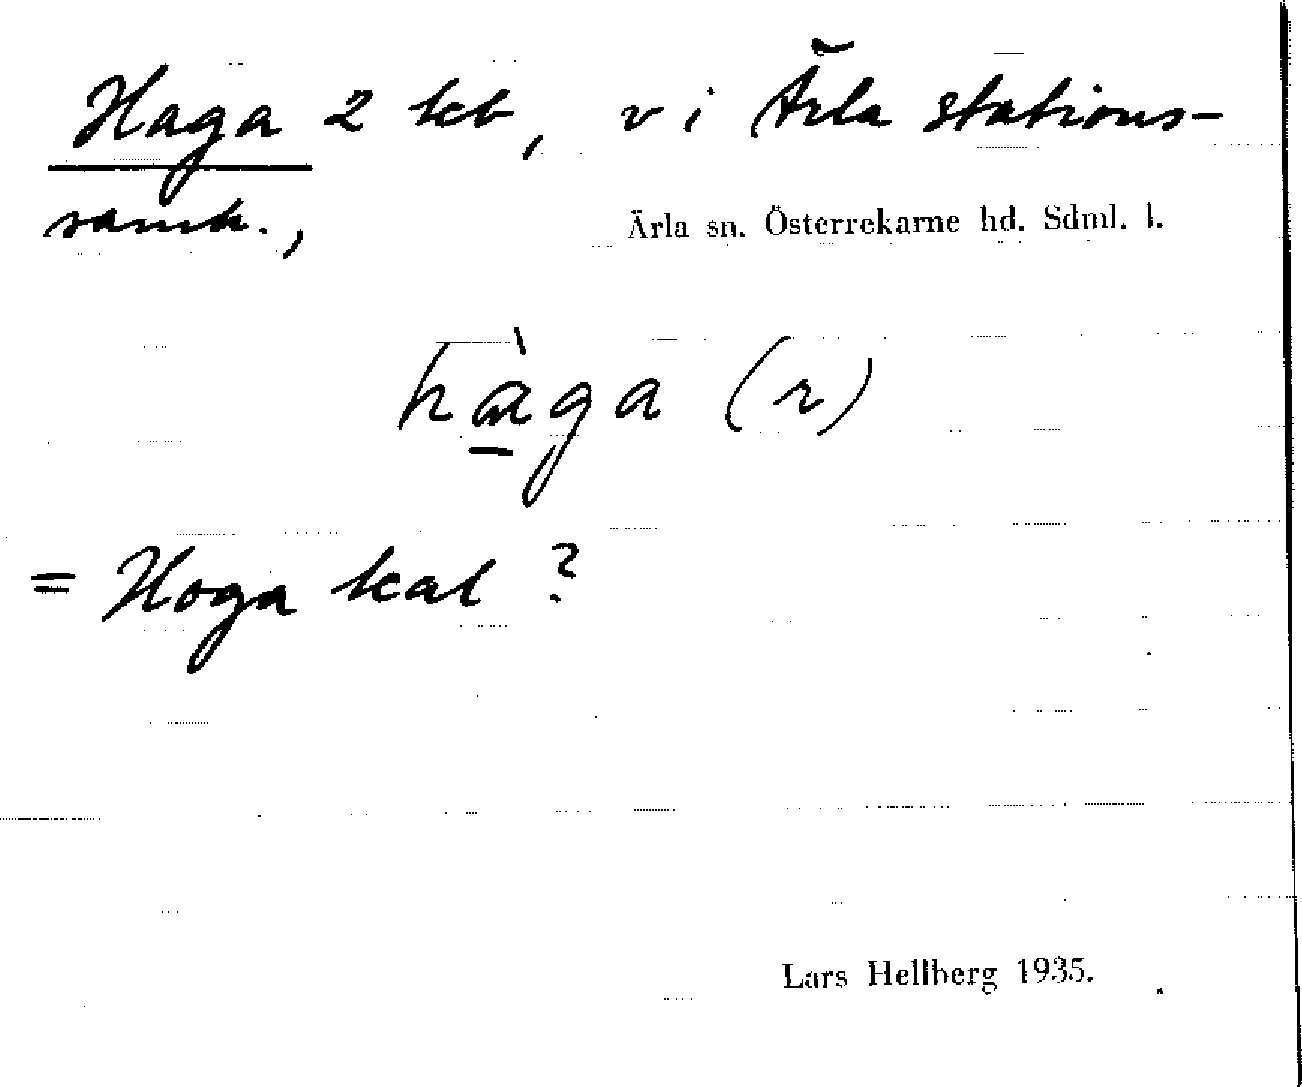 Haga 2 leb, v i Ärla stations-
samh.,
Ärla sn. Österrekarne hd. Sdml. l.
hàga (r)
= Hoga kal ?
Lars Hellberg 1935.